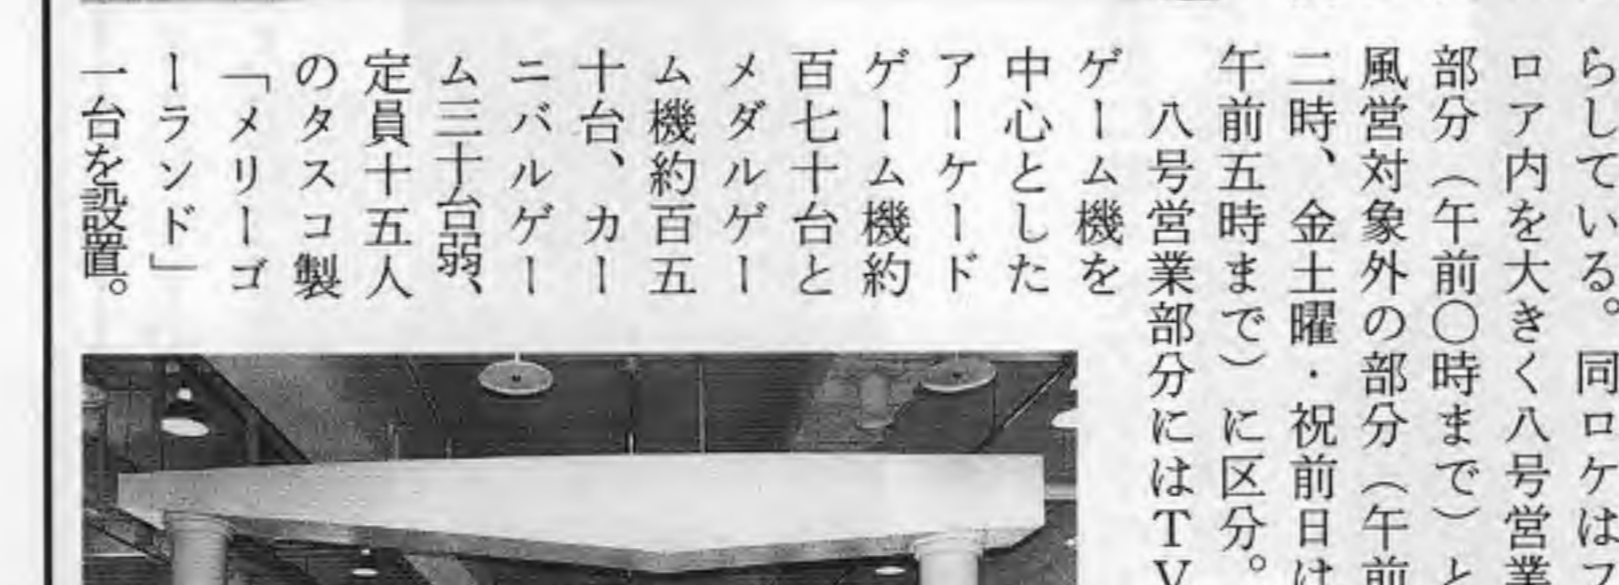 らしている。同ロケはフ
ロア内を大きく八号営業
部分（午前〇時まで）と
風営対象外の部分（午前
二時、金土曜・祝前日は
午前五時まで）に区分。
八号営業部分にはＴＶ
ゲーム機を
中心とした
アーケード
ゲーム機約
百七十台と
メダルゲー
ム機約百五
十台、カー
ニバルゲー
ム三十台弱、
定員十五人
のタスコ製
「メリーゴ
ーランド」
一台を設置。